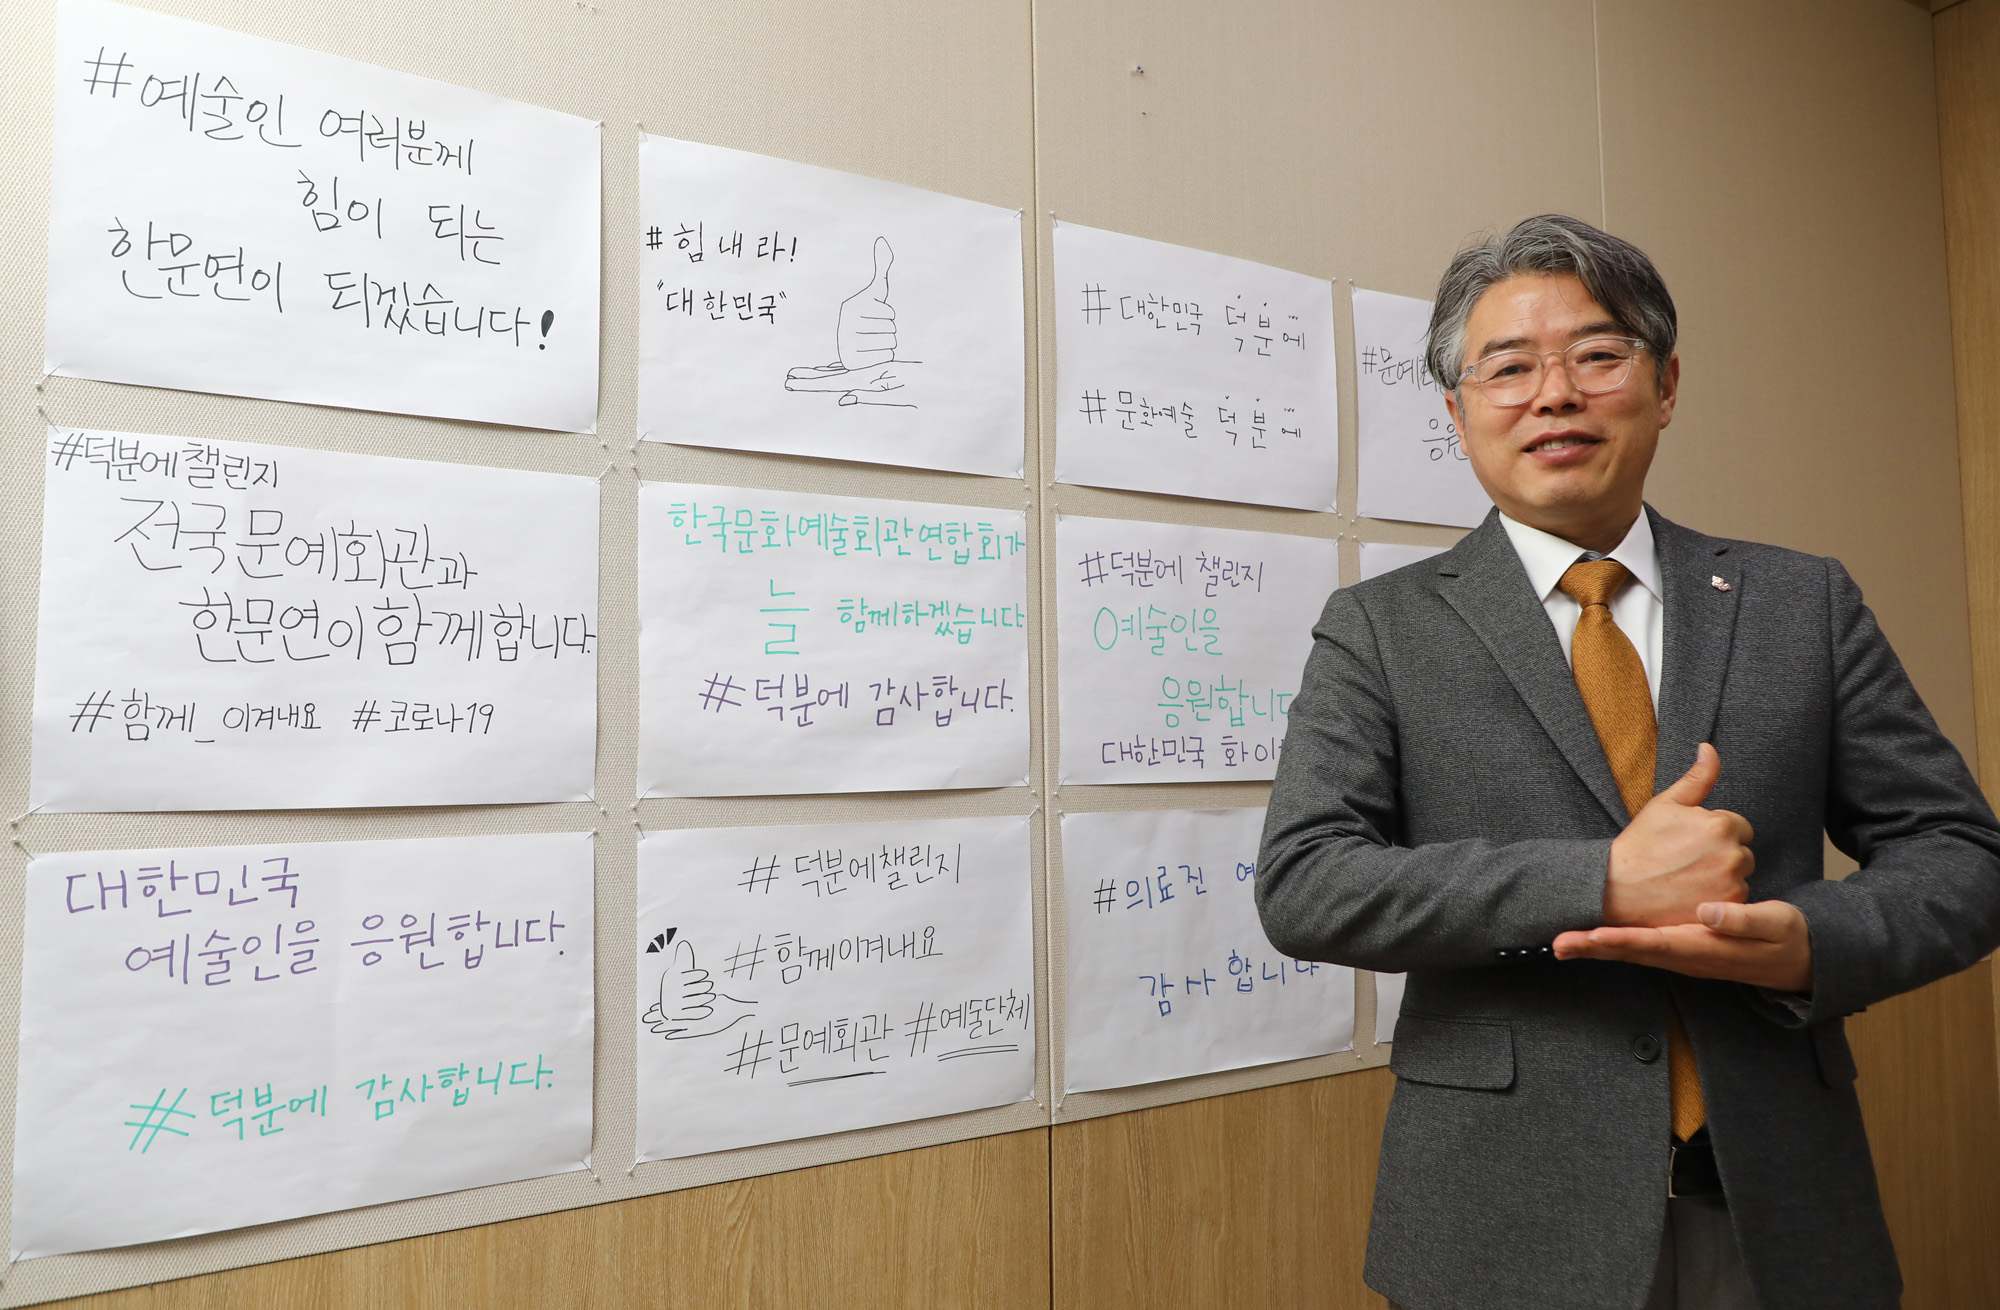 #예술인 여러분께
힘이 되는
한문연이 되겠습니다!
#힘내라!
"대한민국"
#대한민국 덕분에
#문화예술 덕분에
#덕분에챌린지
전국문예회관과
한문연이함께합니다.
#함께_이겨내요 #코로나19
한국문화예술회관연합회가
늘 함께하겠습니다.
#덕분에 감사합니다.
#덕분에 챌린지
예술인을
응원합니다
대한민국
대한민국
예술인을 응원합니다.
#덕분에 감사합니다.
#덕분에챌린지
#함께이겨내요
#문예회관 #예술단체
#의료진
감사합니다